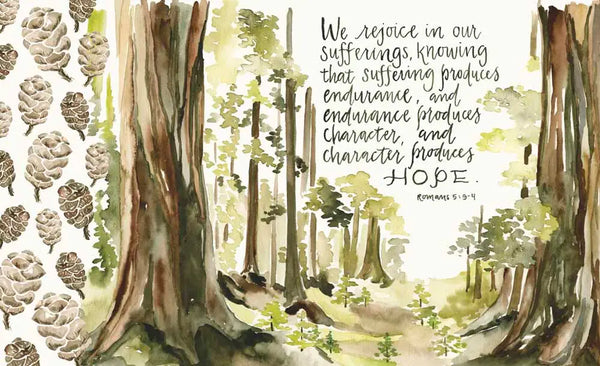 We rejoice in our
sufferings, knowing
that suffering produces
endurance, and
endurance produces
character, and
character produces
HOPE.
Romans 5:3-4